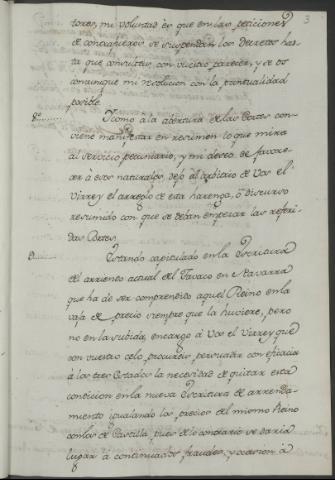 3
tores, mi voluntad es que en las peticiones
de contrafuero se suspendan los decretos has-
ta que consulteis con vuestro parecer, y se os
comunique mi resolucion con la puntualidad
posible.
8º Y como a la abertura de las Cortes con-
viene manifestar en resumen lo que mira
al servicio pecuniario, y mi deseo de favore-
cer à estos naturales, dejo al arbitrio de Vos el
Virrey el arreglo de esta harenga, ò discurso
resumido con que se deban empezar las referi-
das Cortes.
9 Estando capitulado en la Escritura
del arriendo actual del Tavaco en Navarra
que ha de ser comprendido aquel Reino en la
vaja de precio siempre que la huviere, pero
no en la subida, encargo à Vos el Virrey que
con vuestro celo procureis persuadir con eficacia
à los tres Estados la necesidad de quitar esta
condicion en la nueva Escritura de arrenda-
miento igualando los precios del mismo Reino
con los de Castilla, pues de lo contrario se daria
lugar à continuados fraudes, y ocasion à